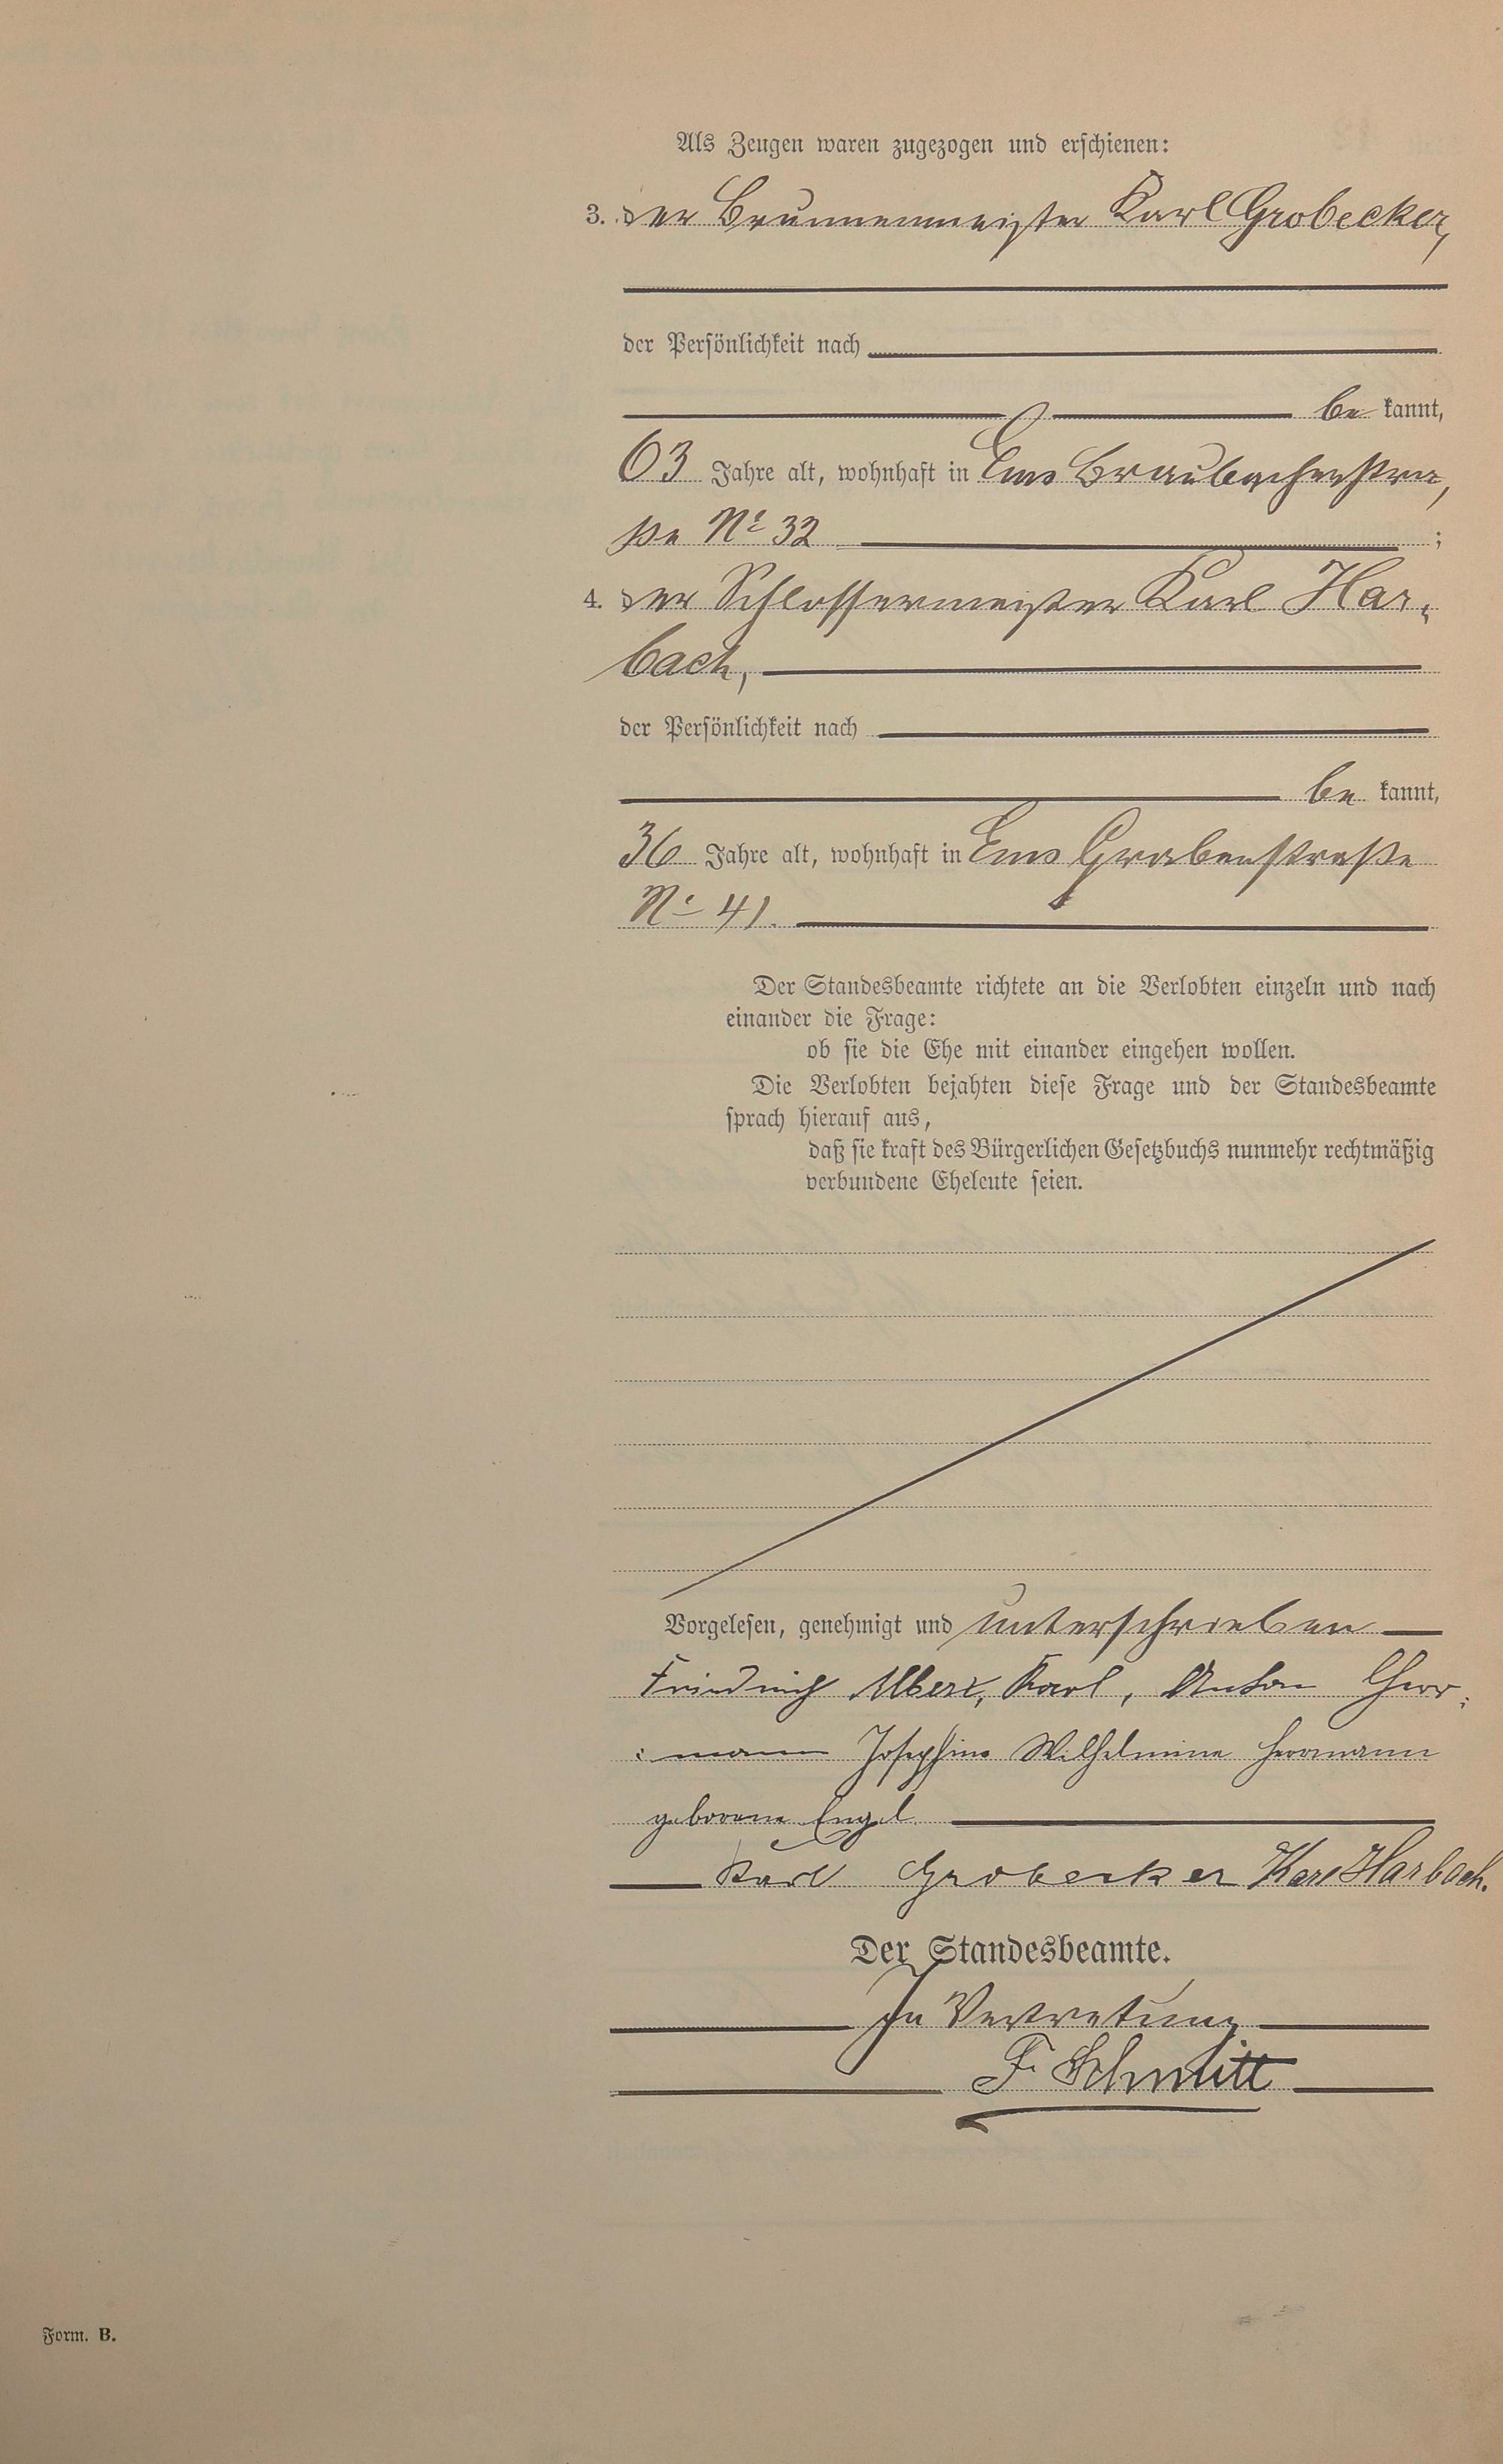 Als Zeugen waren zugezogen und erschienen:
3. der Brunnenmeister Karl Grobecker,
der Persönlichkeit nach
be kannt,
63 Jahre alt, wohnhaft in Ems Braubacherstra,
ße No 32 ;
4. der Schlossermeister Karl Har,
bach,
der Persönlichkeit nach
be kannt,
36 Jahre alt, wohnhaft in Ems Grabenstraße
No 41.
Der Standesbeamte richtete an die Verlobten einzeln und nach
einander die Frage:
ob sie die Ehe mit einander eingehen wollen.
Die Verlobten bejahten diese Frage und der Standesbeamte
sprach hierauf aus,
daß sie kraft des Bürgerlichen Gesetzbuchs nunmehr rechtmäßig
verbundene Eheleute seien.
Vorgelesen, genehmigt und unterschrieben
Friedrich Albert, Karl, Anton Herr:
:mann Josephine Wilhelmine Herrmann
geborene Engel
Karl Grobecker Karl Harbach.
Der Standesbeamte.
In Vertretung
F. Schmitt
Form. B.